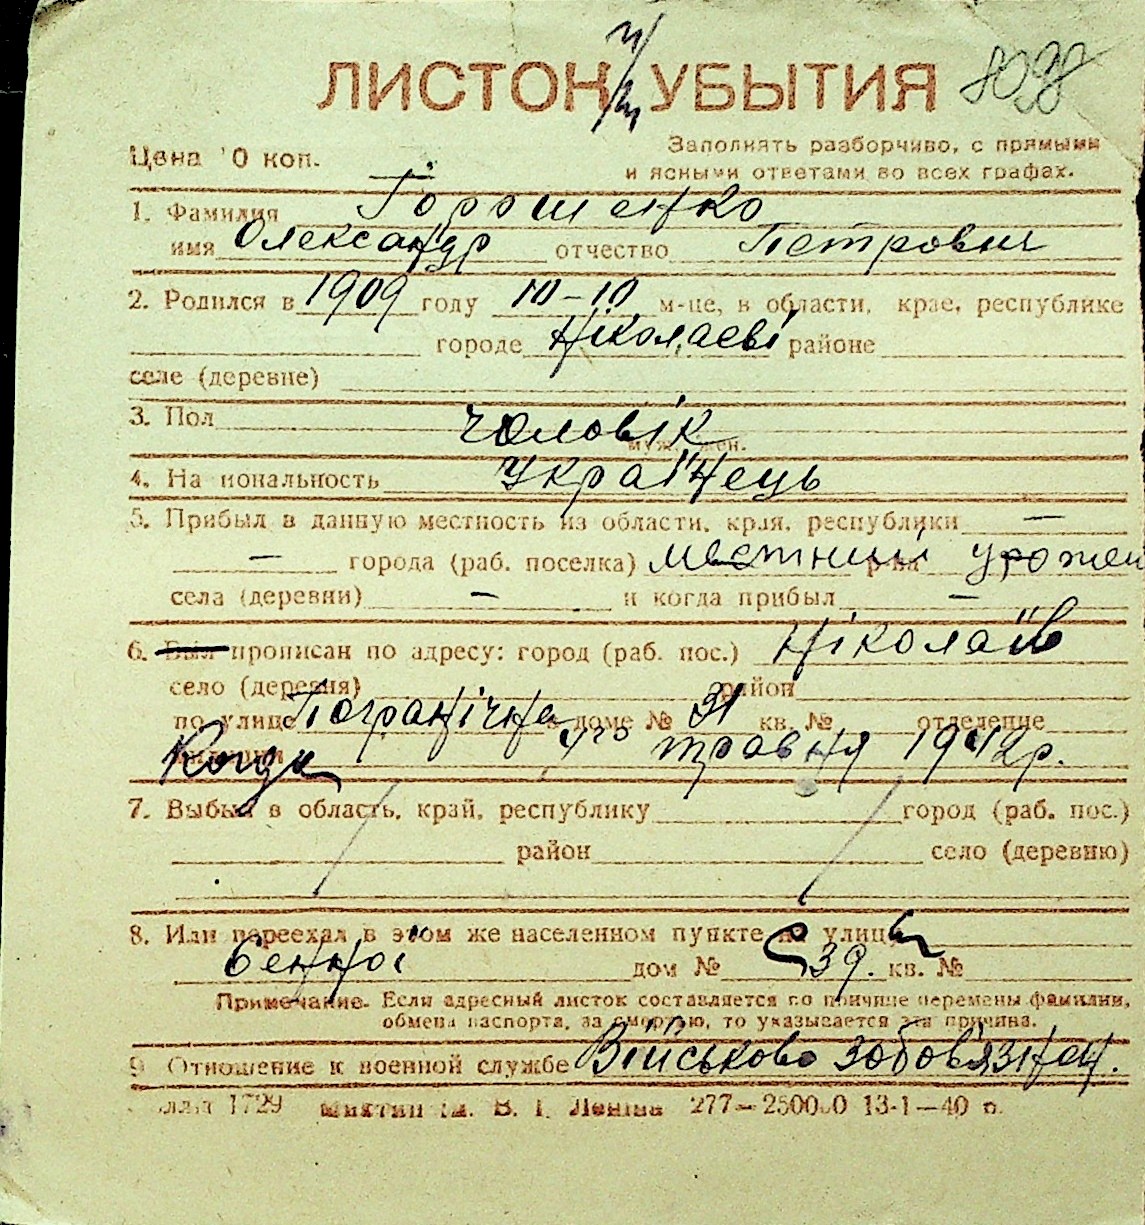 ЛИСТОК УБЫТИЯ
Цена 10 коп.
Заполнять разборчиво, с прямыми
и ясными ответами во всех графах.
1. Фамилия Горошенко
имя Олександр отчество Петрович
2. Родился в 1909 году 10-10 м-це, в области, крае, республике
городе Ніколаєві районе
селе (деревне)
3. Пол чоловік
муж. жен.
4. Национальность Українець
5. Прибыл в данную местность из области, края, республики —
— города (раб. поселка) местний р-на урожен
села (деревни) — и когда прибыл —
6. Был прописан по адресу: город (раб. пос.) Ніколаїв
село (деревня) район
по улице Погранічна в доме № 31 кв. № отделение
милиции Когда 4го травня 1942р.
7. Выбыл в область, край, республику город (раб. пос.)
район село (деревню)
8. Или переехал в этом же населенном пункте на улицу
Сенної дом № 39. кв. №
Примечание. Если адресный листок составляется по причине перемены фамилии,
обмена паспорта, за смертью, то указывается эта причина.
9. Отношение к военной службе Військово зобов'язнан.
1729 им. В. І. Леніна 277—250000 13-1—40 р.